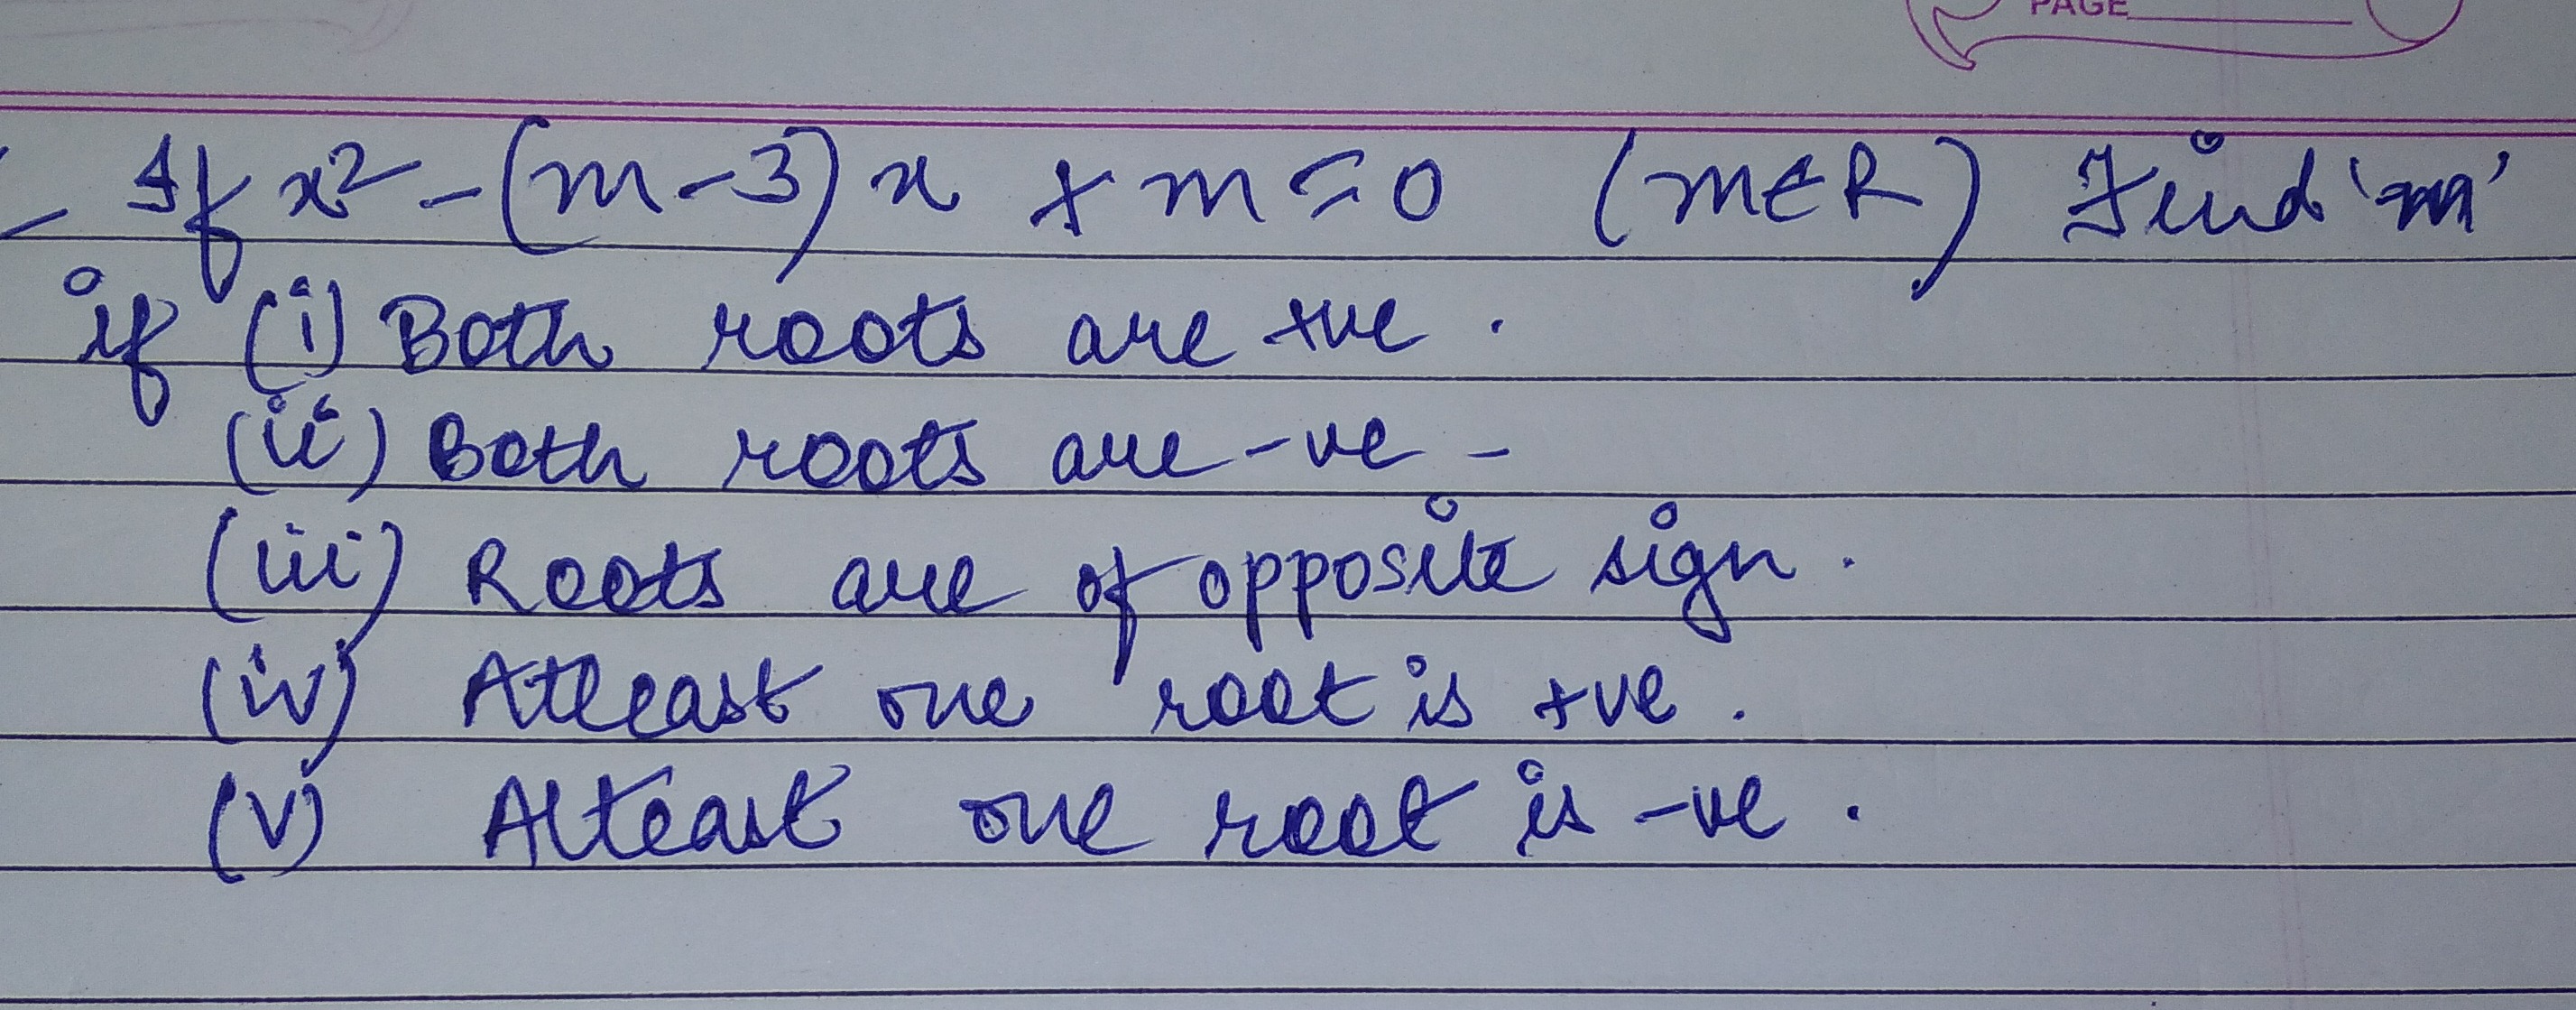 PAGE
If x² - (m-3)x + m = 0 (m∈R) Find 'm'
if (i) Both roots are +ve .
(ii) Both roots are -ve -
(iii) Roots are of opposite sign .
(iv) Atleast one root is +ve .
(v) Atleast one root is -ve .